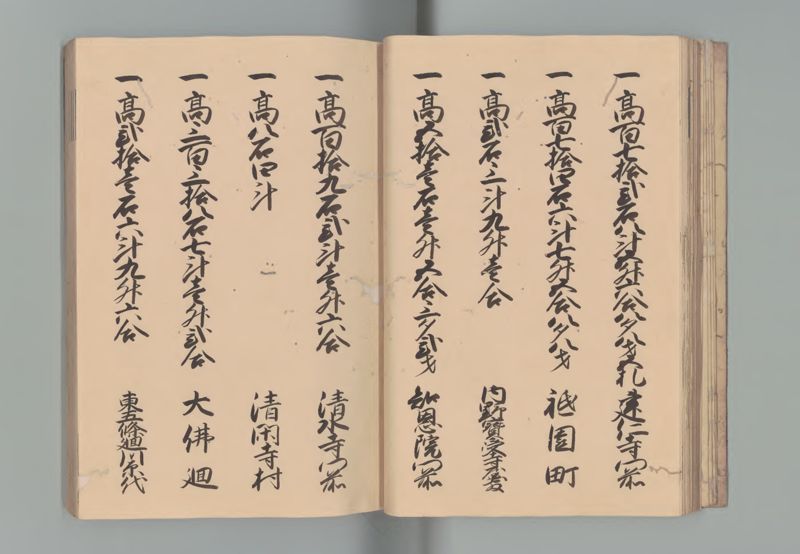 一高百七拾弐石八斗五升六合八夕八才五札 建仁寺門前
一高百七拾四石六斗七升五合八夕八才 祇園町
一高弐石三斗九升壱合 内野
一高五拾壱石壱升五合三夕弐才 知恩院門前
一高百拾九石弐斗壱升六合 清水寺門前
一高八石四斗 清閑寺村
一高三百三拾八石七斗壱升弐合 大佛廻
一高弐拾壱石六斗九升六合 東五條